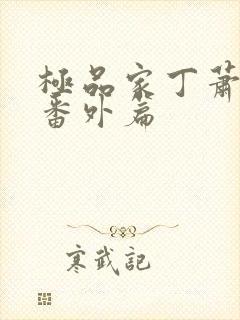 極品家丁蕭
番外篇
寒武記